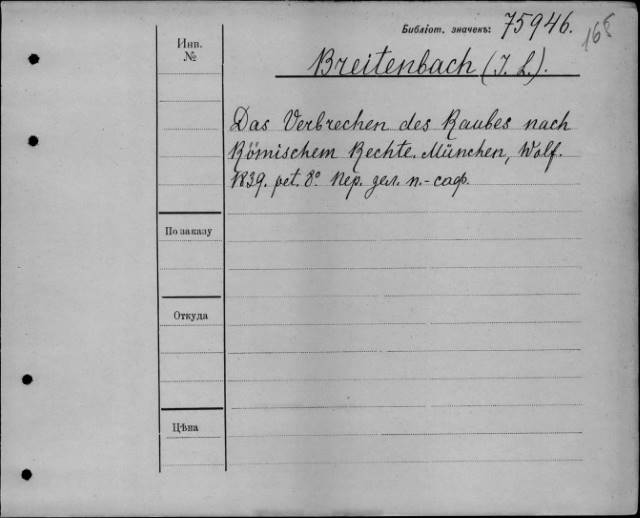 Библіот. значекъ: 75946.
168
Инв.
№
Breitenbach (J. L.).
Das Verbrechen des Raubes nach
Römischem Rechte. München, Wolf.
1839. pet. 8° Пер. зел. п.-саф.
По заказу
Откуда
Цѣна